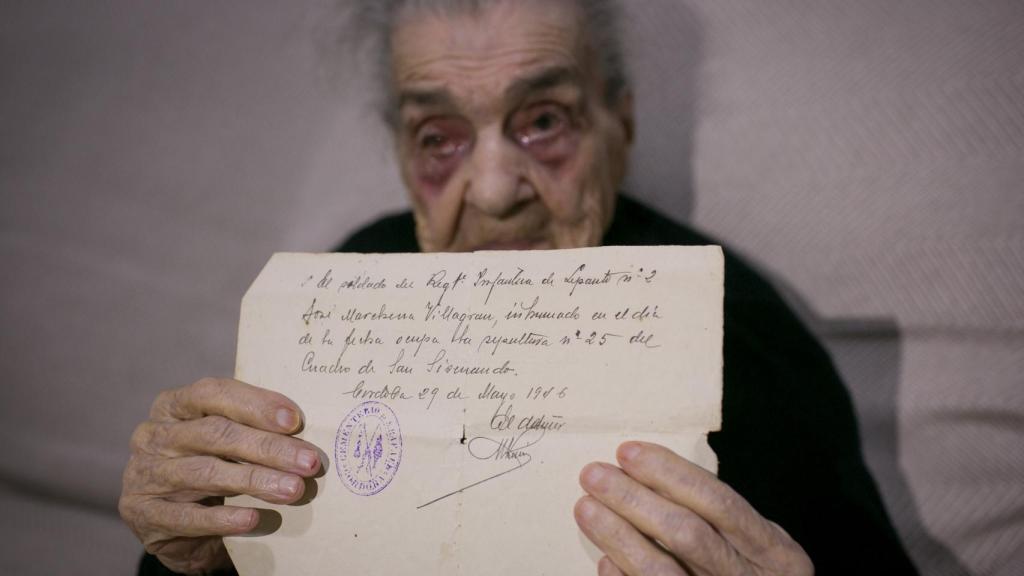 El soldado del Regtº Infantería de Lepanto nº 2
José Marchena Villagran, inhumado en el día
de la fecha ocupa la sepultura nº 25 del
Cuadro de San Sisenando.
Cordoba 29 de Mayo 19 6
CEMENTERIO CORDOBA